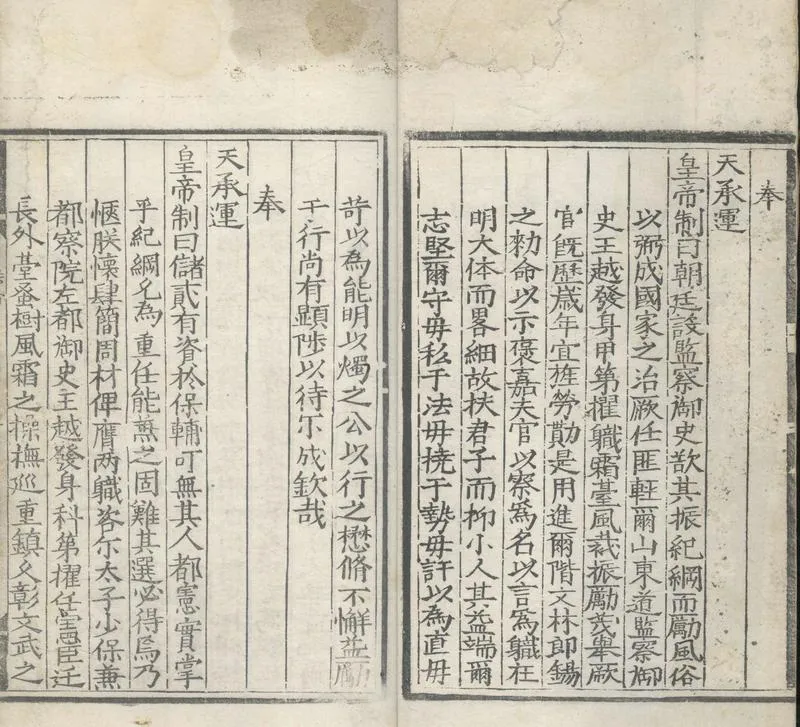 奉
天承運
皇帝制曰朝廷設監察御史欲其振紀綱而勵風俗
以弼成國家之治厥任匪輕爾山東道監察御
史王越發身甲第擢職霜臺風裁振勵茂舉厥
官旣歷歲年宜旌勞勩是用進爾階文林郎錫
之勑命以示褒嘉夫官以察爲名以言爲職在
明大体而畧細故扶君子而抑小人其益端爾
志堅爾守毋私于法毋撓于勢毋訐以為直毋
苛以為能明以燭之公以行之懋脩不懈益勵
于行尚有顯陟以待尓成欽哉
奉
天承運
皇帝制曰儲貳有資於保輔可無其人都憲實掌
乎紀綱允為重任能兼之固難其選必得焉乃
愜朕懷肆簡周材俾膺两職咨尓太子少保兼
都察院左都御史王越發身科第擢任憲臣迁
長外臺蚤樹風霜之操撫巡重鎮久彰文武之